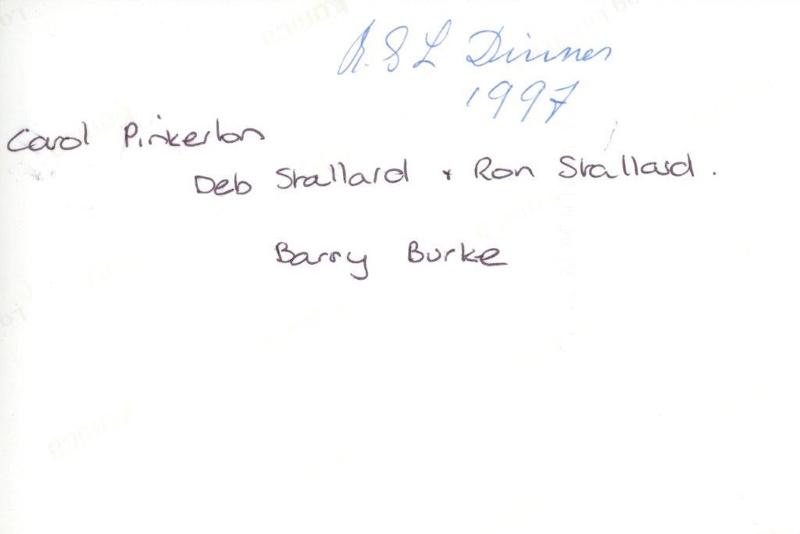 R.S L Dinner
1997
Carol Pinkerton
Deb Stallard + Ron Stallard.
Barry Burke